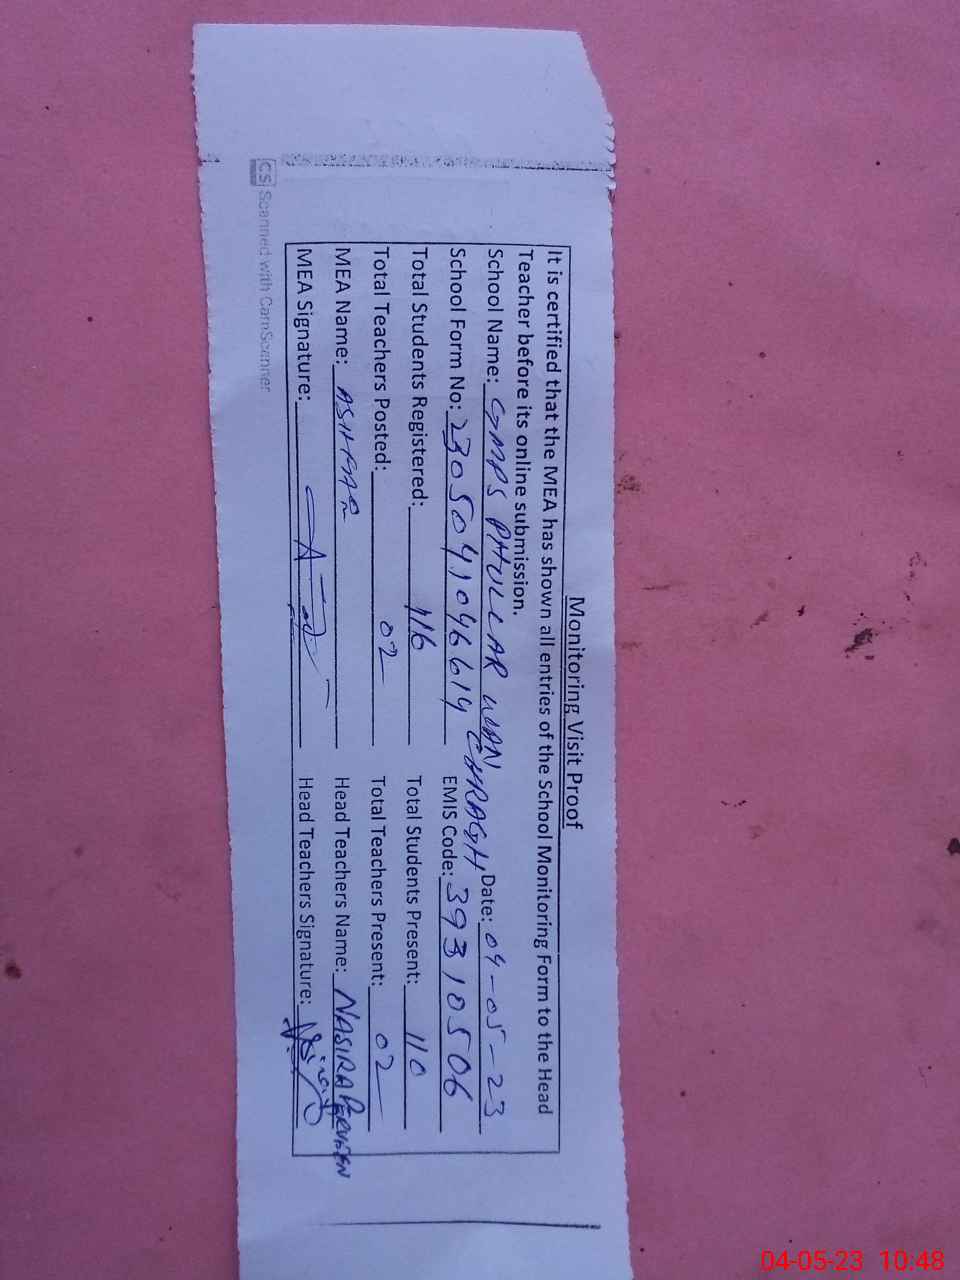 Monitoring Visit Proof
It is certified that the MEA has shown all entries of the School Monitoring Form to the Head
Teacher before its online submission.
School Name: GMPS PHULLAR WAN CHRAGH Date: 04-05-23
School Form No: 2305041046619 EMIS Code: 39310506
Total Students Registered: 116 Total Students Present: 110
Total Teachers Posted: 02 Total Teachers Present: 02
MEA Name: Head Teachers Name: NASIRA PERVEEN
MEA Signature: Head Teachers Signature:
CS Scanned with CamScanner
04-05-23 10:48